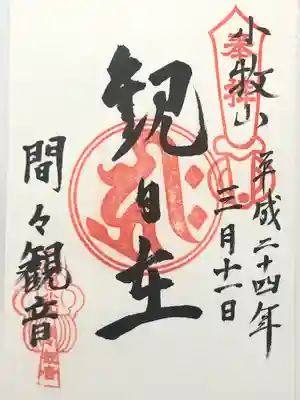 小牧山
奉拝
平成二十四年
三月十一日
観自在
間々観音